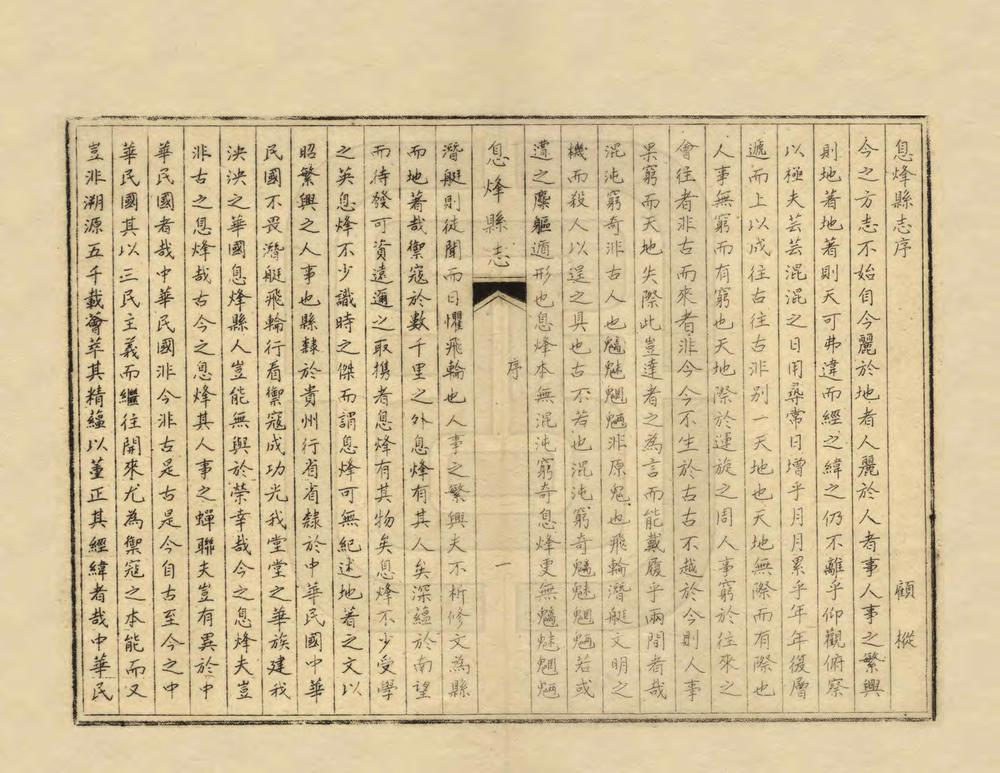 息烽縣志序
顧樅
今之方志不始自今麗於地者人麗於人者事人事之繁興
則地著地著則天可弗違而經之緯之仍不離乎仰觀俯察
以極夫芸芸混混之日用尋常日增乎月月累乎年年復層
遞而上以成往古往古非別一天地也天地無際而有際也
人事無窮而有窮也天地際於運旋之周人事窮於往來之
會往者非古而來者非今今不生於古古不越於今則人事
果窮而天地失際此豈達者之為言而能戴履乎兩間者哉
混沌窮奇非古人也魑魅魍魎非原鬼也飛輪潛艇文明之
機而殺人以逞之具也古不若也混沌窮奇魑魅魍魎若或
遭之麋軀遁形也息烽本無混沌窮奇息烽更無魑魅魍魎
息烽縣志
序
一
潛艇則徒聞而日懼飛輪也人事之繁興夫不祈修文為縣
而地著哉禦寇於數千里之外息烽有其人矣深蘊於南望
而待發可資遠邇之取攜者息烽有其物矣息烽不少受學
之英息烽不少識時之傑而謂息烽可無紀述地著之文以
昭繁興之人事也縣隸於貴州行省省隸於中華民國中華
民國不畏潛艇飛輪行看禦寇成功光我堂堂之華族建我
泱泱之華國息烽縣人豈能無與於榮幸哉今之息烽夫豈
非古之息烽哉古今之息烽其人事之蟬聯夫豈有異於中
華民國者哉中華民國非今非古是古是今自古至今之中
華民國其以三民主義而繼往開來尤為禦寇之本能而又
豈非溯源五千載薈萃其精蘊以董正其經緯者哉中華民